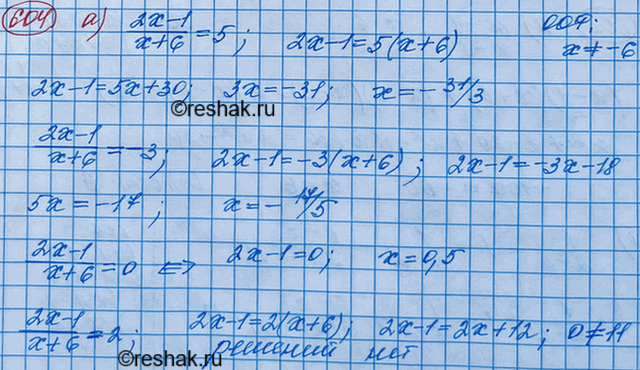 604 а) (2x-1)/(x+6) = 5; 2x-1=5(x+6) ОДЗ:
x≠-6
2x-1=5x+30; 3x=-31; x=-31/3
©reshak.ru
(2x-1)/(x+6) = -3; 2x-1=-3(x+6); 2x-1=-3x-18
5x=-17; x=-17/5
(2x-1)/(x+6) = 0 ⇔ 2x-1=0; x=0,5
(2x-1)/(x+6) = 2; 2x-1=2(x+6); 2x-1=2x+12; 0≠11
решений нет
©reshak.ru